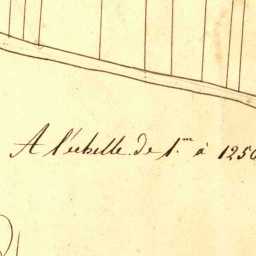 A l'échelle de 1.m à 1250